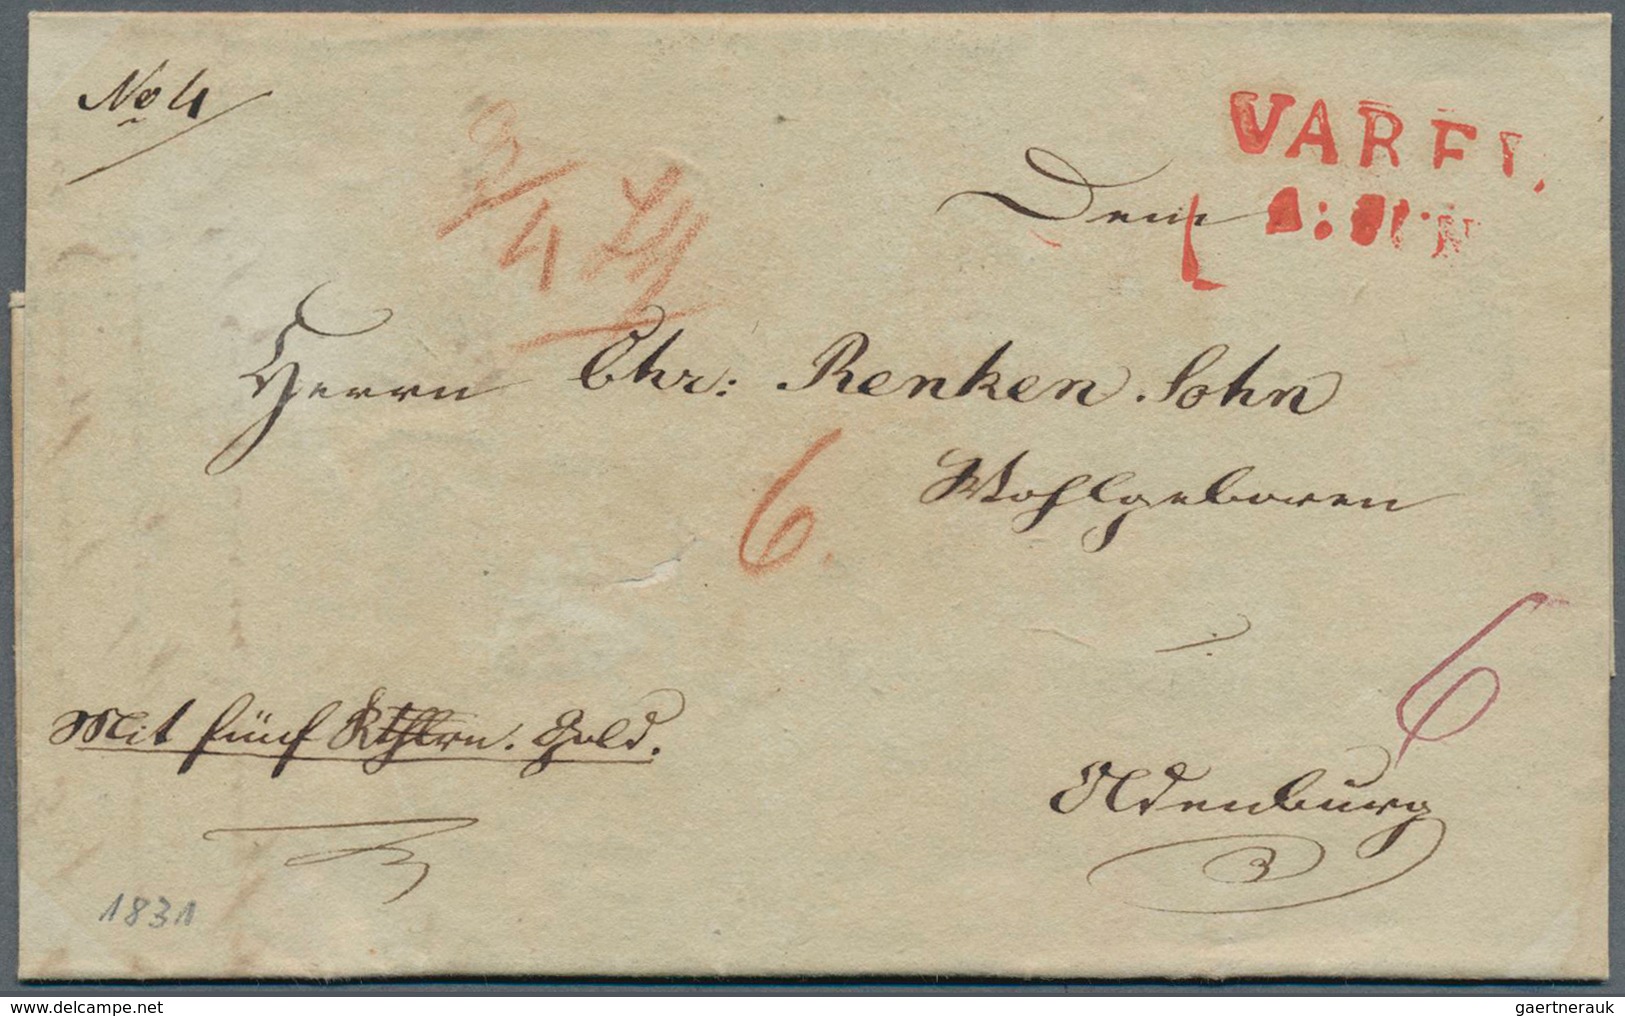 No 4
VAREL.
JUN
Dem
Herrn Chr: Renken Sohn
Wohlgeboren
6.
6
Mit fünf Rthlrn. Gold.
Oldenburg
1831
delcampe.net
gaertnerauk